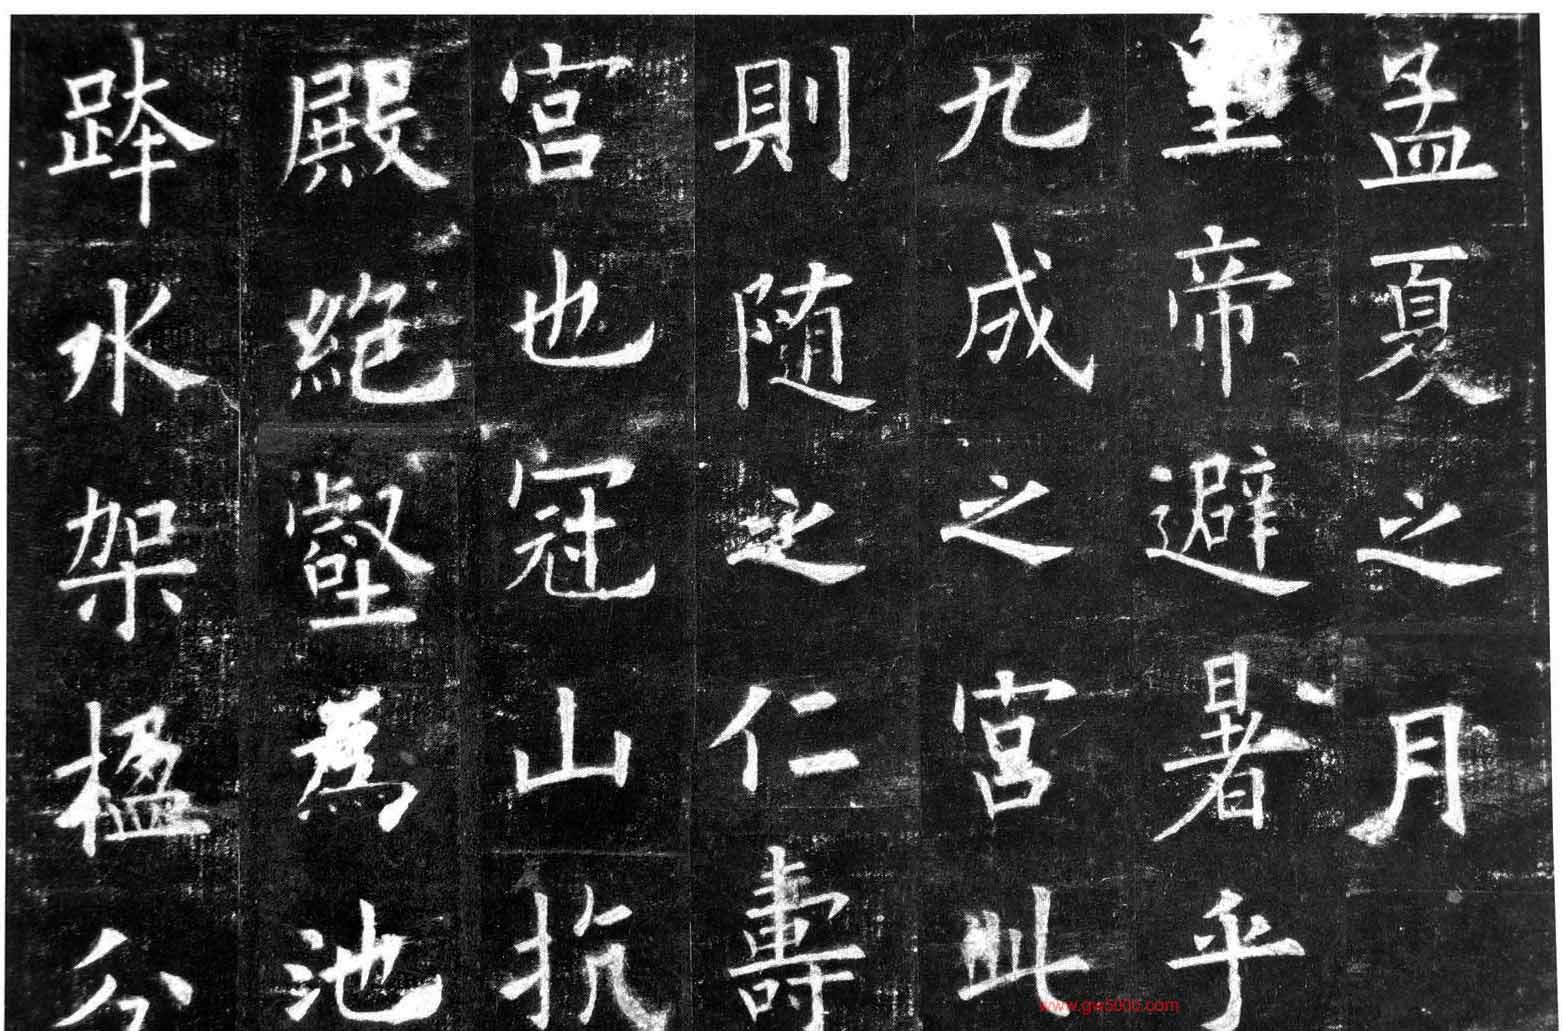 孟夏之月
皇帝避暑乎
九成之宮此
則随之仁壽
宮也冠山抗
殿絶壑為池
跨水架楹分
www.gw5000.com